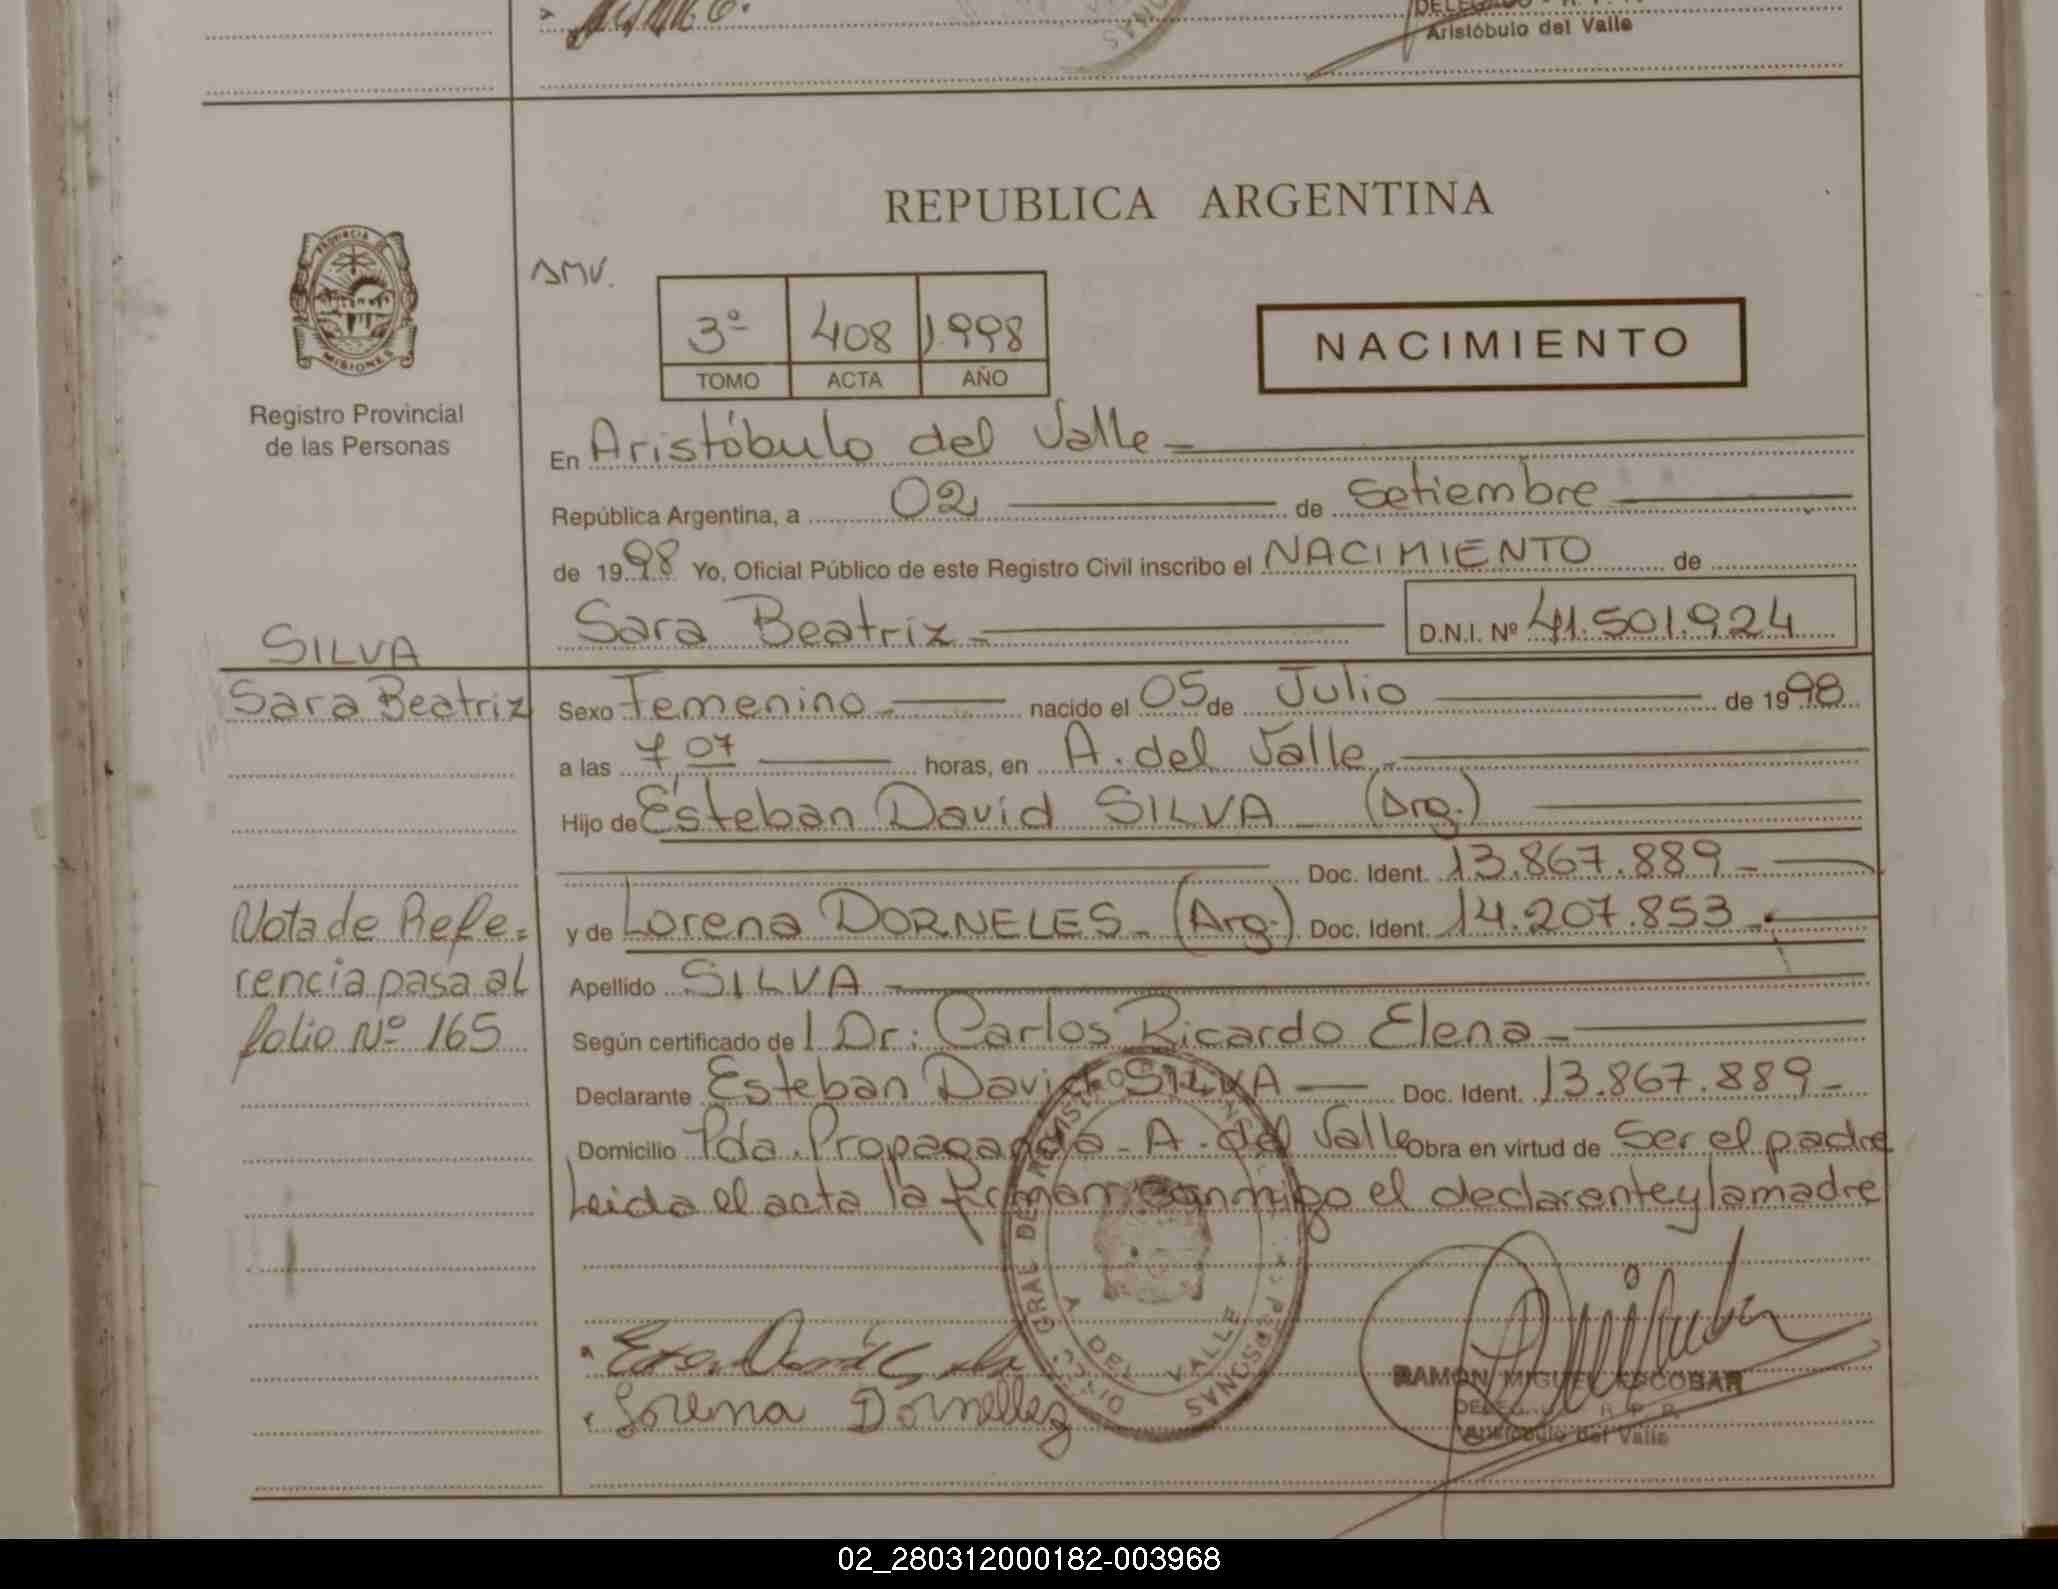 DELEGADO - R. P. P.
Aristóbulo del Valle
REPUBLICA ARGENTINA
PROVINCIA DE
MISIONES
Registro Provincial
de las Personas
3º 408 1998
TOMO ACTA AÑO
NACIMIENTO
En Aristóbulo del Valle -
República Argentina, a 02 de Setiembre
de 1998 Yo, Oficial Público de este Registro Civil inscribo el NACIMIENTO de
Sara Beatriz - D.N.I. Nº 41.501.924
SILVA
Sara Beatriz
Sexo Femenino - nacido el 05 de Julio de 1998
a las 7,07 horas, en A. del Valle -
Hijo de Esteban David SILVA - (Arg.)
Doc. Ident. 13.867.889 -
y de Lorena DORNELES - (Arg.) Doc. Ident. 14.207.853 -
Nota de Refe=
rencia pasa al
folio Nº 165
Apellido SILVA -
Según certificado de l Dr: Carlos Ricardo Elena -
Declarante Esteban David SILVA - Doc. Ident. 13.867.889 -
Domicilio Pda. Propaganda - A. del Valle Obra en virtud de Ser el padre
Leida el acta la firman conmigo el declarante y la madre
DEL VALLE
PERSONAS
Lorena Dornellez
RAMON MIGUEL ESCOBAR
DELEG. R. P. P.
Aristóbulo del Valle
02_280312000182-003968